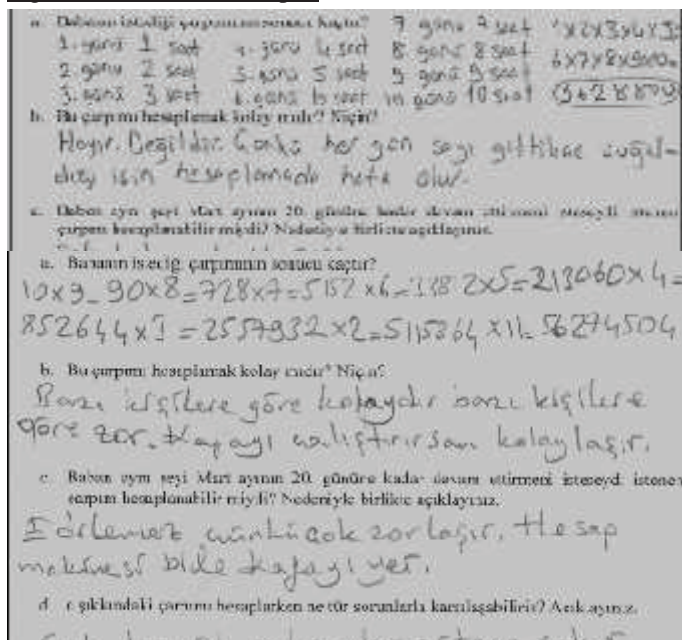 a. Babanın istediği çarpımın sonucu kaçtır? 7 günü 7 saat 1x2x3x4x5
1. günü 1 saat 4. günü 4 saat 8 günü 8 saat 6x7x8x9x10=
2. günü 2 saat 5. günü 5 saat 9 günü 9 saat
3. günü 3 saat 6. günü 6 saat 10 günü 10 saat
b. Bu çarpımı hesaplamak kolay mıdır? Niçin?
Hayır. Değildir. Çünkü her gün sayı gittikce
için hesaplamada hata olur.
c. Baban aynı şeyi Mart ayının 20. gününe kadar devam ettirmeni isteseydi istenen
çarpım hesaplanabilir miydi? Nedeniyle birlikte açıklayınız.
a. Babanın istediği çarpımının sonucu kaçtır?
10x9=90x8=728x7=5152x6= x5=213060x4=
852644x3=2557932x2=5115364x11=56274504
b. Bu çarpımı hesaplamak kolay mıdır? Niçin?
Bazı kişilere göre kolaydır bazı kişilere
göre zor. Kafayı çalıştırırsan kolaylaşır.
c. Baban aynı şeyi Mart ayının 20. gününe kadar devam ettirmeni isteseydi istenen
çarpım hesaplanabilir miydi? Nedeniyle birlikte açıklayınız.
çünkü çok zorlaşır. Hesap
makinesi bile kafayı yer.
d. c şıkkındaki çarpımı hesaplarken ne tür sorunlarla karşılaşabiliriz? Açıklayınız.